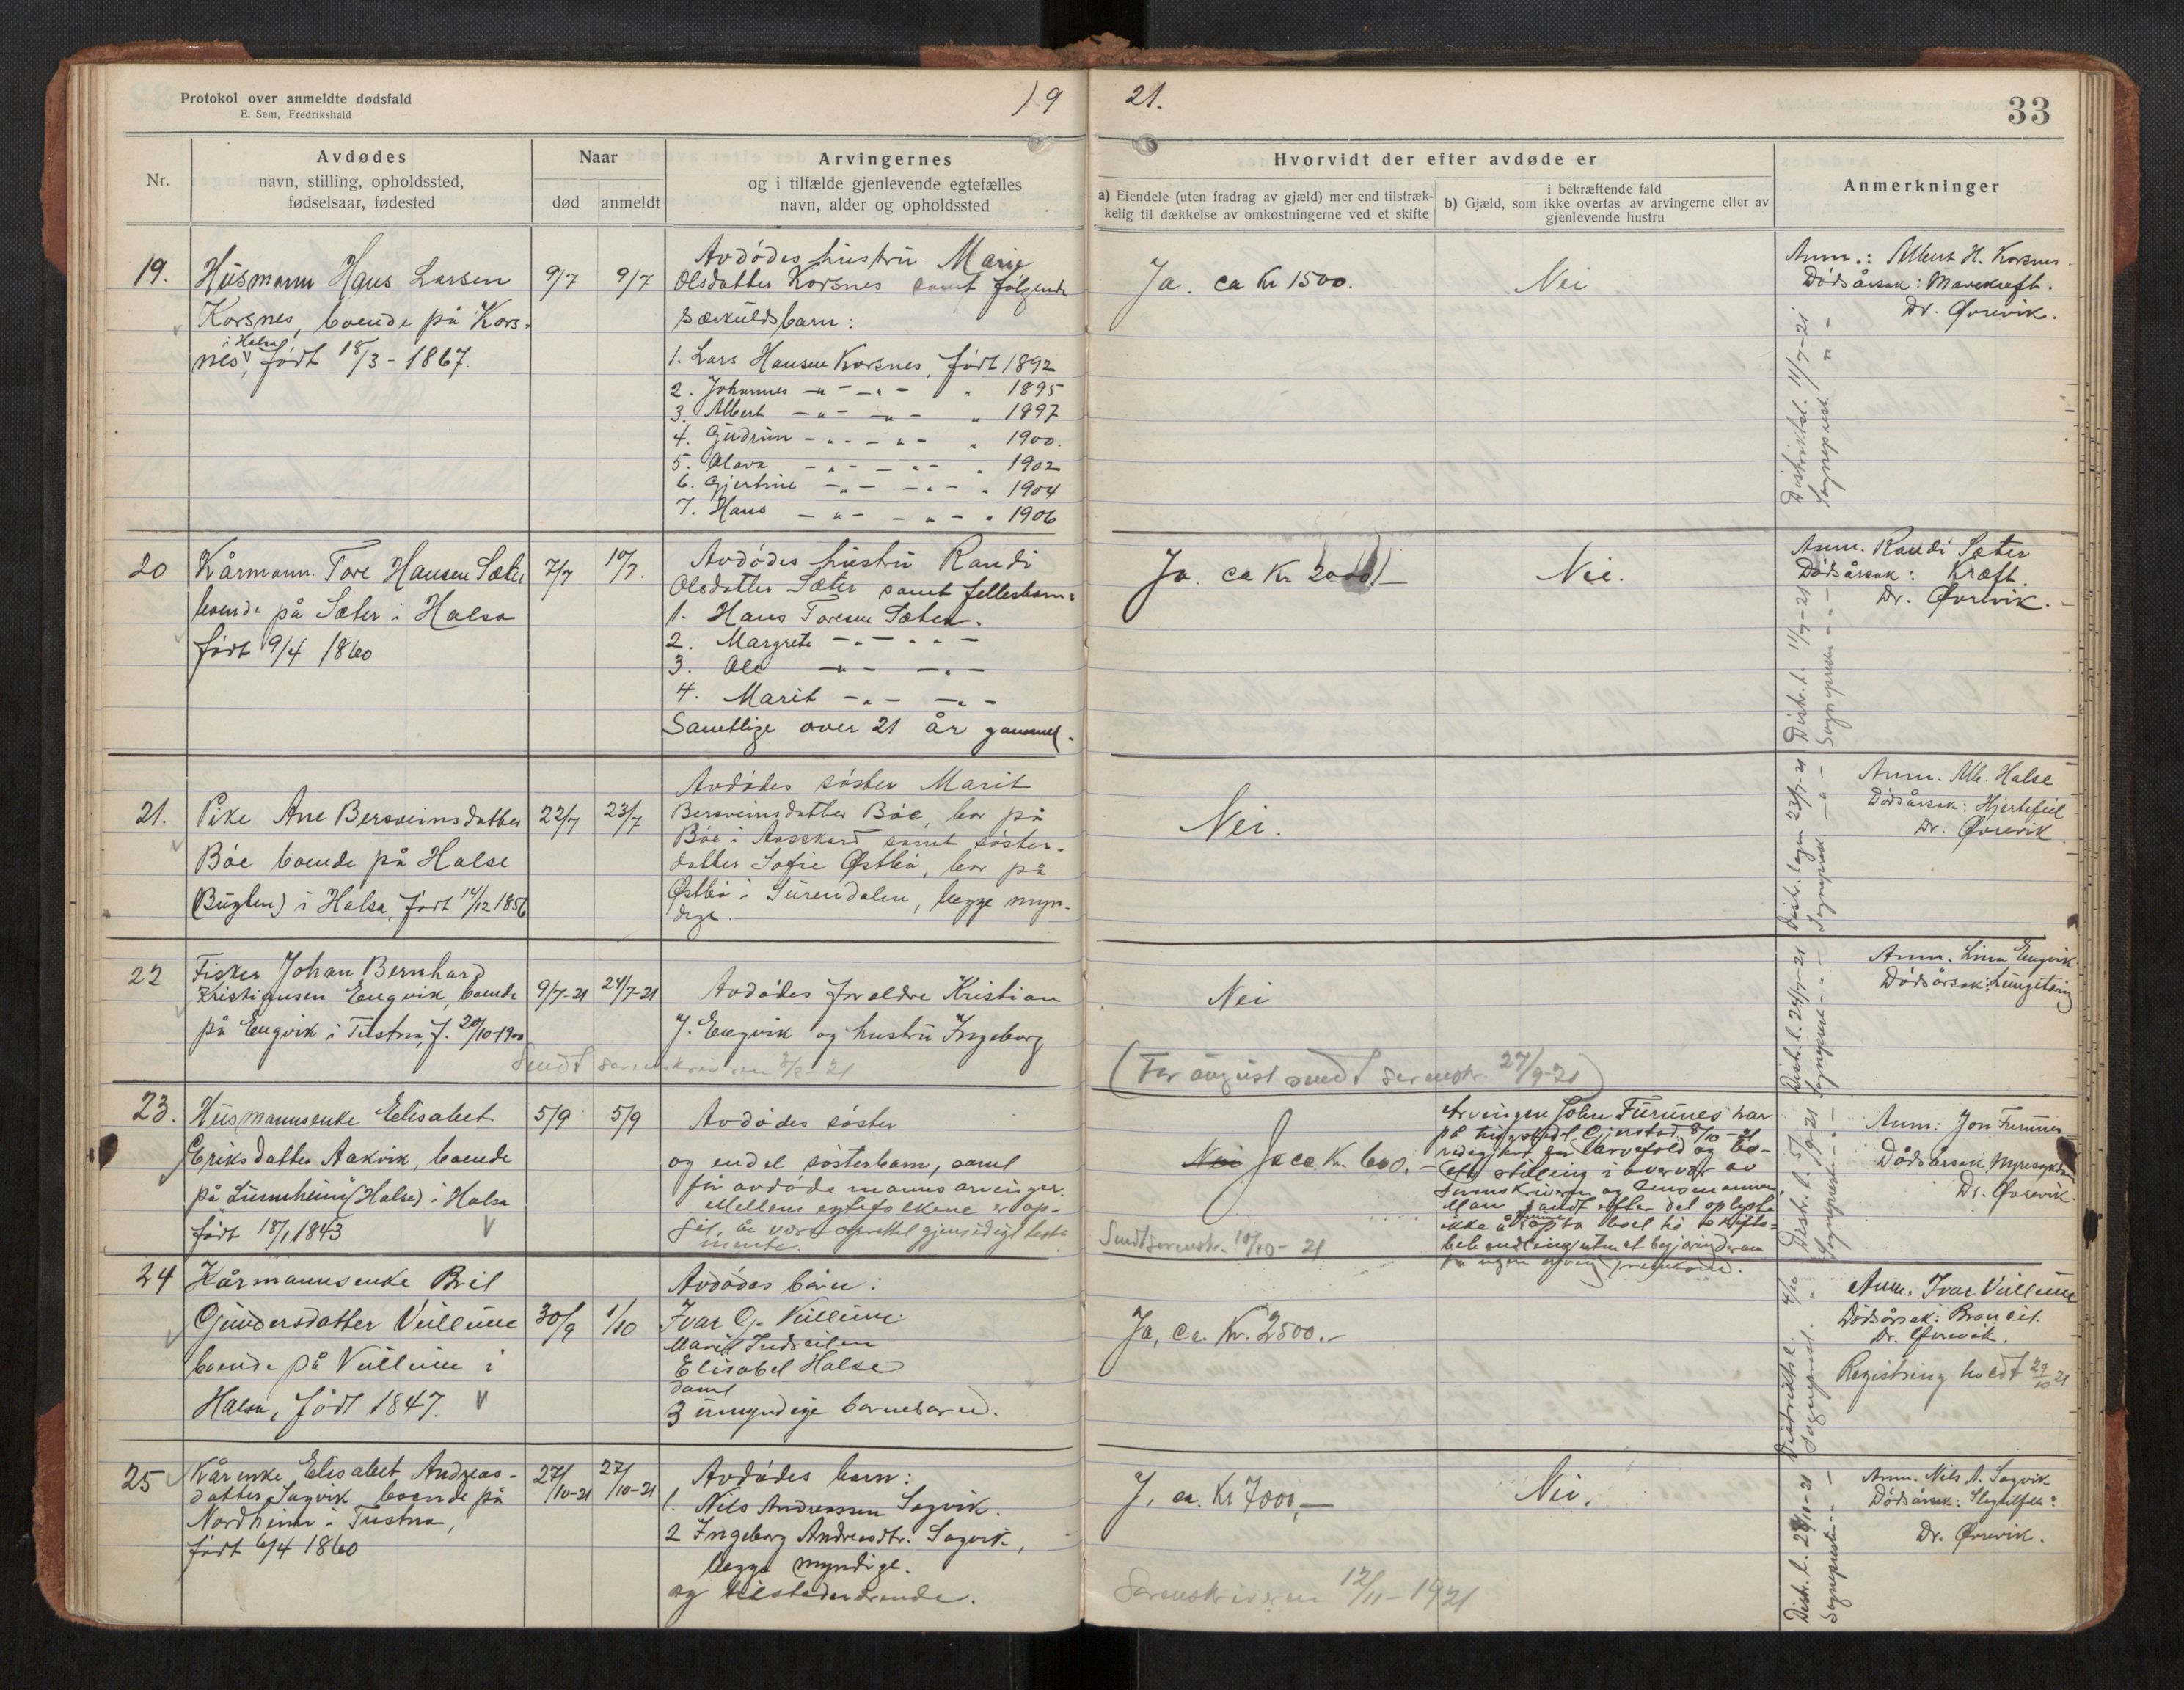 Protokol over anmeldte dødsfald
E. Sem, Fredrikshald
19
21.
33
Nr.
Avdødes
navn, stilling, opholdssted,
fødselsaar, fødested
Naar
død
anmeldt
Arvingernes
og i tilfælde gjenlevende egtefælles
navn, alder og opholdssted
Hvorvidt der efter avdøde er
a) Eiendele (uten fradrag av gjæld) mer end tilstræk-
kelig til dækkelse av omkostningerne ved et skifte
i bekræftende fald
b) Gjæld, som ikke overtas av arvingerne eller av
gjenlevende hustru
Anmerkninger
19.
Husmann Hans Larsen
Korsnes, boende på Kors-
nes i Halsa, født 18/3 - 1867.
9/7
9/7
Avdødes hustru Marie
Olsdatter Korsnes samt følgende
særkuldsbarn:
1. Lars Hansen Korsnes, født 1892
2. Johannes -"- -"- " 1895
3. Albert -"- -"- " 1897
4. Gudrun -"- -"- " 1900.
5. Olava -"- -"- " 1902
6. Gjertine -"- -"- " 1904
7. Hans -"- -"- " 1906
Ja. ca Kr 1500.
Nei
Anm.: Albert H. Korsnes.
Dødsårsak: Mavekræft.
Dr. Øvrevik.
Distriktsl. 11/7-21
Sogneprest " -
20
Kårmann Tore Hansen Sæter
boende på Sæter i Halsa
født 9/4 1860
7/7
10/7.
Avdødes hustru Randi
Olsdatter Sæter samt fellesbarn:
1. Hans Toresen Sæter.
2. Margrete -"- -"-
3. Ole -"- -"-
4. Marit -"- -"-
Samtlige over 21 år gammel.
Ja. ca Kr 2000/-
Nei.
Anm. Randi Sæter
Dødsårsak: Kræft.
Dr. Øvrevik.
Distr. l. 11/7-21
Sognepresten -"-
21.
Pike Ane Bersveinsdatter
Bøe boende på Halse
(Buglen) i Halsa, født 14/12 1856
22/7
23/7
Avdødes søster Marit
Bersveinsdatter Bøe, bor på
Bøe i Aasskard samt søster-
datter Sofie Østbø, bor på
Østbø i Surendalen, begge myn-
dige.
Nei.
Anm. Alb. Halse
Dødsårsak: Hjertefeil
Dr. Øvrevik.
Distr. lægen 23/7-21
Sogneprest. -"-
22
Fisker Johan Bernhard
Kristiansen Engvik, boende
på Engvik i Tustna, f. 20/10-1900
9/7-21
24/7-21
Avdødes foreldre Kristian
J. Engvik og hustru Ingeborg
Sendt sorenskriveren 3/8-21
Nei
(For august sendt sorenskr. 27/9-21)
Anm. Lina Engvik
Dødsårsak: Lungetæring
Distr. l. 24/7-21
Sogneprest -"-
23.
Husmannsenke Elisabet
Eriksdatter Aakvik, boende
på "Lunnheim" (Halse) i Halsa
født 18/1 1843
5/9
5/9
Avdødes søster
og endel søsterbarn, samt
før avdøde manns arvinger.
Mellem egtefolkene er op-
git, å være oprettet gjensidigt testa
mente.
Nei Ja ca. Kr. 600.-
Sendt sorenskr. 10/10-21
Arvingen John Furunes har
på tingstedet Gjerstad 8/10-21
behandling uten at begjæring derom
Anm: Jon Furunes
Dødsårsak
Dr. Øvrevik.
Distr. l. 5/9-21
Sogneprest -"-
24
Kårmannsenke Bril
Gundersdatter Vullum
boende på Vullum i
Halsa, født 1847.
30/9
1/10
Avdødes barn:
Ivar G. Vullum
Marit
Elisabet Halse
samt
3 umyndige barnebarn.
Ja, ca. Kr. 2500.-
Anm. Ivar Vullum
Dødsårsak:
Dr. Øvrevik.
Registrering holdt 29/10 21
Distriktsl. 4/10
Sogneprest. "
25
Kårenke Elisabet Andreas-
datter Sagvik boende på
Nordheim i Tustna,
født 6/4 1860
27/10-21
27/10-21
Avdødes barn:
1. Nils Andreassen Sagvik.
2 Ingeborg Andreasdtr. Sagvik,
begge myndige.
og tilstedeværende.
J. ca. Kr 7000,-
Nei.
Sorenskriveren 12/11-1921
Anm. Nils A. Sagvik
Dødsårsak: Slagtilfelle
Dr. Øvrevik.
Distr. l. 28/10-21
Sogneprest -"-